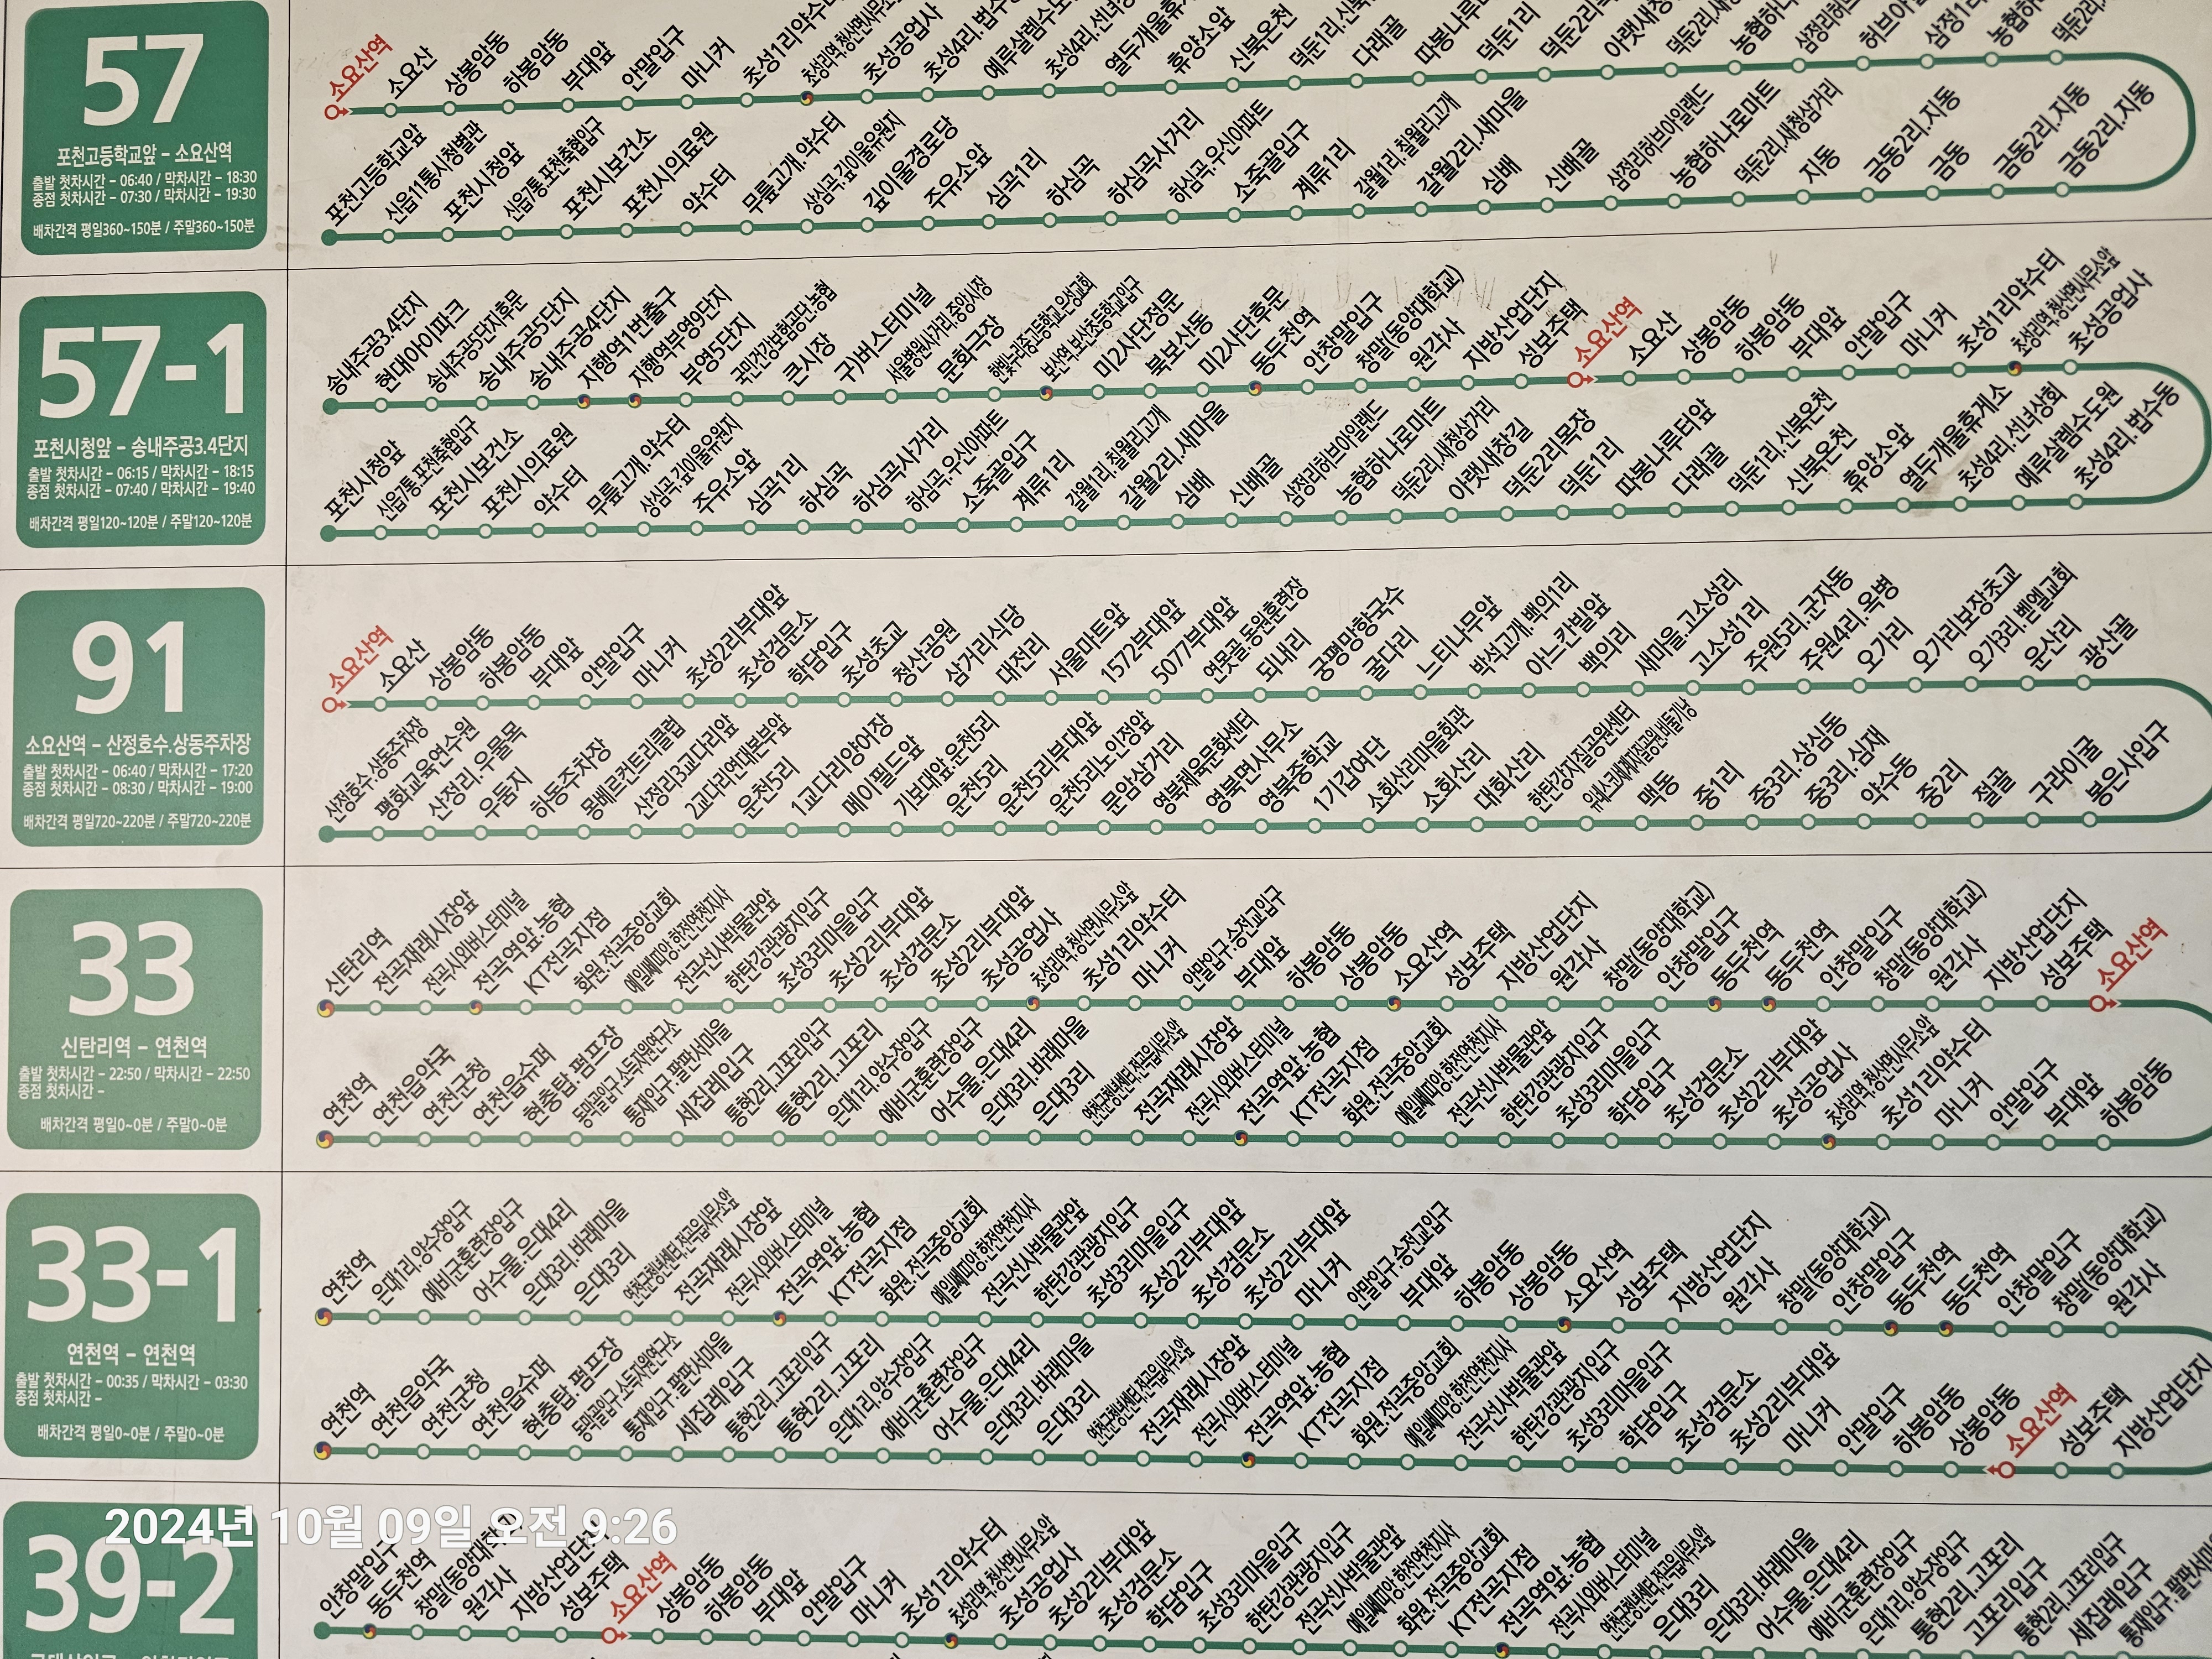 57
포천고등학교앞 - 소요산역
출발 첫차시간 - 06:40 / 막차시간 - 18:30
종점 첫차시간 - 07:30 / 막차시간 - 19:30
배차간격 평일360~150분 / 주말360~150분
소요산역 소요산 상봉암동 하봉암동 부대앞 안말입구 마니커 초성1리약수터 초성리역.청산면사무소앞 초성공업사 초성4리.법수동 예루살렘수도원 초성4리.선녀상회 열두개울휴게소 휴양소앞 신북온천 덕둔1리.신북온천 다래골 따봉나루터앞 덕둔1리 덕둔2리목장 아랫새창길
포천고등학교앞 신읍11통시청별관 포천시청앞 신읍7통.포천축협입구 포천시보건소 포천시의료원 약수터 무릎고개.약수터 상심곡.깊이울유원지 깊이울경로당 주유소앞 심곡1리 하심곡 하심곡사거리 하심곡.우신아파트 소죽골입구 계류1리 갈월1리.칠월리고개 갈월2리.새마을 심배 신배골 삼정리허브아일랜드 농협하나로마트 덕둔2리.새청삼거리 지동 금동2리.지동 금동 금동2리.지동 금동2리.지동
57-1
포천시청앞 - 송내주공3.4단지
출발 첫차시간 - 06:15 / 막차시간 - 18:15
종점 첫차시간 - 07:40 / 막차시간 - 19:40
배차간격 평일120~120분 / 주말120~120분
송내주공3.4단지 현대아이파크 송내주공5단지후문 송내주공5단지 송내주공4단지 지행역1번출구 지행역부영9단지 부영5단지 국민건강보험공단.농협 큰시장 구)버스터미널 서울병원사거리.중앙시장 문화극장 한빛누리중고등학교.은성교회 보산역.보산초등학교입구 미2사단정문 북보산동 미2사단후문 동두천역 안창말입구 창말(동양대학교) 원각사 지방산업단지 성보주택 소요산역 소요산 상봉암동 하봉암동 부대앞 안말입구 마니커 초성1리약수터 초성리역.청산면사무소앞 초성공업사
포천시청앞 신읍7통.포천축협입구 포천시보건소 포천시의료원 약수터 무릎고개.약수터 상심곡.깊이울유원지 주유소앞 심곡1리 하심곡 하심곡사거리 하심곡.우신아파트 소죽골입구 계류1리 갈월1리.칠월리고개 갈월2리.새마을 심배 신배골 삼정리허브아일랜드 농협하나로마트 덕둔2리.새청삼거리 아랫새창길 덕둔2리목장 덕둔1리 따봉나루터앞 다래골 덕둔1리.신북온천 신북온천 휴양소앞 열두개울휴게소 초성4리.선녀상회 예루살렘수도원 초성4리.법수동
91
소요산역 - 산정호수.상동주차장
출발 첫차시간 - 06:40 / 막차시간 - 17:20
종점 첫차시간 - 08:30 / 막차시간 - 19:00
배차간격 평일720~220분 / 주말720~220분
소요산역 소요산 상봉암동 하봉암동 부대앞 안말입구 마니커 초성2리부대앞 초성검문소 학담입구 초성초교 청산공원 삼거리식당 대전리 서울마트앞 1572부대앞 5077부대앞 연못골.동원훈련장 되내리 궁평망향국수 굴다리 느티나무앞 박석고개.백의1리 아느칸빌앞 백의리 새마을.고소성리 고소성1리 주원5리.군자동 주원4리.옥병 오가리 오가리보장초교 오가3리.벧엘교회 운산리 광산골
산정호수.상동주차장 평화교육연수원 산정리.우물목 우둠지 하동주차장 몽베르컨트리클럽 산정리3교다리앞 2교다리연대본부앞 운천5리 1교다리양어장 메이필드앞 기보대앞.운천5리 운천5리 운천5리부대앞 운천5리노인정앞 문암삼거리 영북체육문화센터 영북면사무소 영북중학교 1기갑여단 소회산리마을회관 소회산리 대회산리 한탄강지질공원센터 유네스코세계지질공원.비둘기낭 맥동 중1리 중3리.상심동 중3리.심재 약수동 중2리 절골 구라이굴 봉은사입구
33
신탄리역 - 연천역
출발 첫차시간 - 22:50 / 막차시간 - 22:50
종점 첫차시간 -
배차간격 평일0~0분 / 주말0~0분
신탄리역 전곡재래시장앞 전곡시외버스터미널 전곡역앞.농협 KT전곡지점 화원.전곡중앙교회 에일쎄띠앙.한전연천지사 전곡선사박물관앞 한탄강관광지입구 초성3리마을입구 초성2리부대앞 초성검문소 초성2리부대앞 초성공업사 초성리역.청산면사무소앞 초성1리약수터 마니커 안말입구.승전교입구 부대앞 하봉암동 상봉암동 소요산역 성보주택 지방산업단지 원각사 창말(동양대학교) 안창말입구 동두천역 동두천역 안창말입구 창말(동양대학교) 원각사 지방산업단지 성보주택 소요산역
연천역 연천읍약국 연천군청 연천읍슈퍼 현충탑.펌프장 통재입구.팔판서마을 세집레입구 통현2리.고포리입구 통현2리.고포리 은대1리.양수장입구 예비군훈련장입구 어수물.은대4리 은대3리.바래마을 은대3리 연천군행복센터.전곡읍사무소앞 전곡재래시장앞 전곡시외버스터미널 전곡역앞.농협 KT전곡지점 화원.전곡중앙교회 에일쎄띠앙.한전연천지사 전곡선사박물관앞 한탄강관광지입구 초성3리마을입구 학담입구 초성검문소 초성2리부대앞 초성공업사 초성리역.청산면사무소앞 초성1리약수터 마니커 안말입구 부대앞 하봉암동
33-1
연천역 - 연천역
출발 첫차시간 - 00:35 / 막차시간 - 03:30
종점 첫차시간 -
배차간격 평일0~0분 / 주말0~0분
연천역 은대1리.양수장입구 예비군훈련장입구 어수물.은대4리 은대3리.바래마을 은대3리 연천군행복센터.전곡읍사무소앞 전곡재래시장앞 전곡시외버스터미널 전곡역앞.농협 KT전곡지점 화원.전곡중앙교회 에일쎄띠앙.한전연천지사 전곡선사박물관앞 한탄강관광지입구 초성3리마을입구 초성2리부대앞 초성검문소 초성2리부대앞 마니커 안말입구.승전교입구 부대앞 하봉암동 상봉암동 소요산역 성보주택 지방산업단지 원각사 창말(동양대학교) 안창말입구 동두천역 동두천역 안창말입구 창말(동양대학교) 원각사
연천역 연천읍약국 연천군청 연천읍슈퍼 현충탑.펌프장 통재입구.팔판서마을 세집레입구 통현2리.고포리입구 통현2리.고포리 은대1리.양수장입구 예비군훈련장입구 어수물.은대4리 은대3리.바래마을 은대3리 연천군행복센터.전곡읍사무소앞 전곡재래시장앞 전곡시외버스터미널 전곡역앞.농협 KT전곡지점 화원.전곡중앙교회 에일쎄띠앙.한전연천지사 전곡선사박물관앞 한탄강관광지입구 초성3리마을입구 학담입구 초성검문소 초성2리부대앞 마니커 안말입구 하봉암동 상봉암동 소요산역 성보주택 지방산업단지
2024년 10월 09일 오전 9:26
39-2
안창말입구 동두천역 창말(동양대학교) 원각사 지방산업단지 성보주택 소요산역 상봉암동 하봉암동 부대앞 안말입구 마니커 초성1리약수터 초성리역.청산면사무소앞 초성공업사 초성2리부대앞 초성검문소 학담입구 초성3리마을입구 한탄강관광지입구 전곡선사박물관앞 에일쎄띠앙.한전연천지사 화원.전곡중앙교회 KT전곡지점 전곡역앞.농협 전곡시외버스터미널 연천군행복센터.전곡읍사무소앞 은대3리 은대3리.바래마을 어수물.은대4리 예비군훈련장입구 은대1리.양수장입구 통현2리.고포리 고포리입구 통현2리.고포리입구 세집레입구